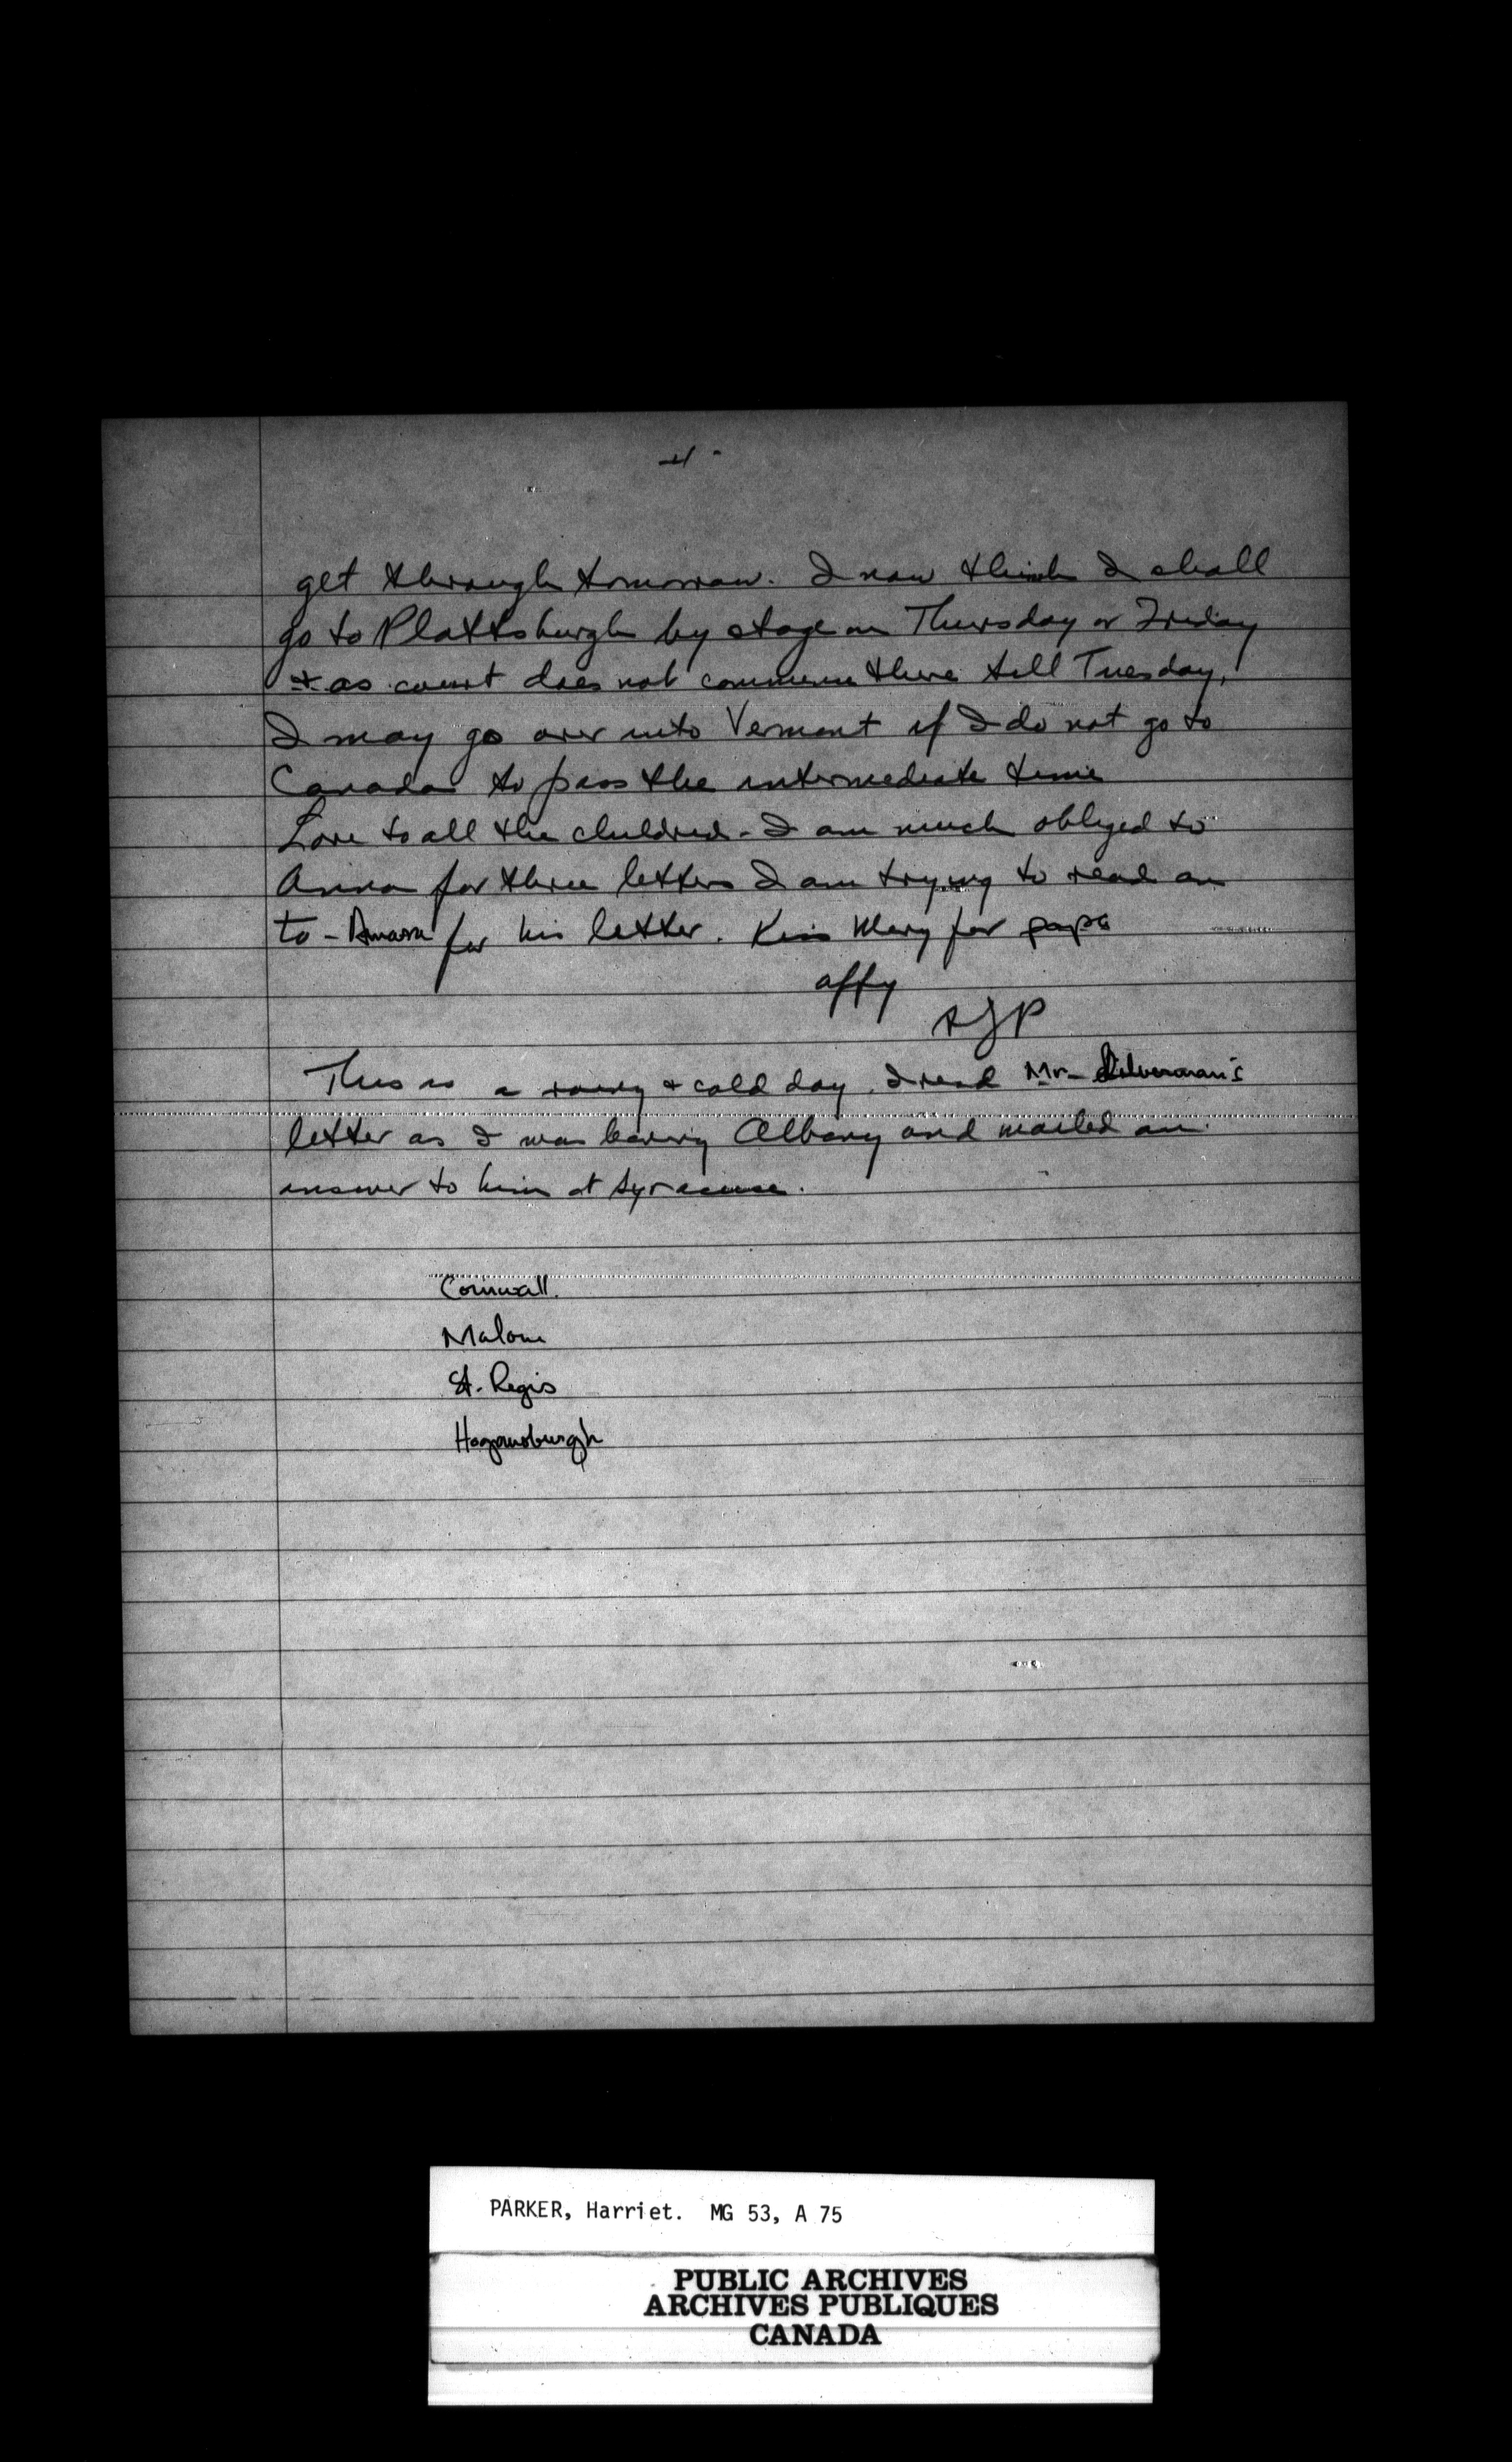 4 -
get through tomorrow. I now think I shall
go to Plattsburgh by stage on Thursday or Friday
& as court does not commence there till Tuesday,
I may go over into Vermont if I do not go to
Canada to pass the intermediate time
Love to all the children - I am much obliged to
Anna for three letters I am trying to read an
to - Amasa for his letter. Kiss Mary for papa
affy
AJP
This is a rainy & cold day. I read Mr - Silverman's
letter as I was leaving Albany and mailed an
answer to him at Syracuse.
Cornwall.
Malone
St. Regis
Hogansburgh
PARKER, Harriet. MG 53, A 75
PUBLIC ARCHIVES
ARCHIVES PUBLIQUES
CANADA